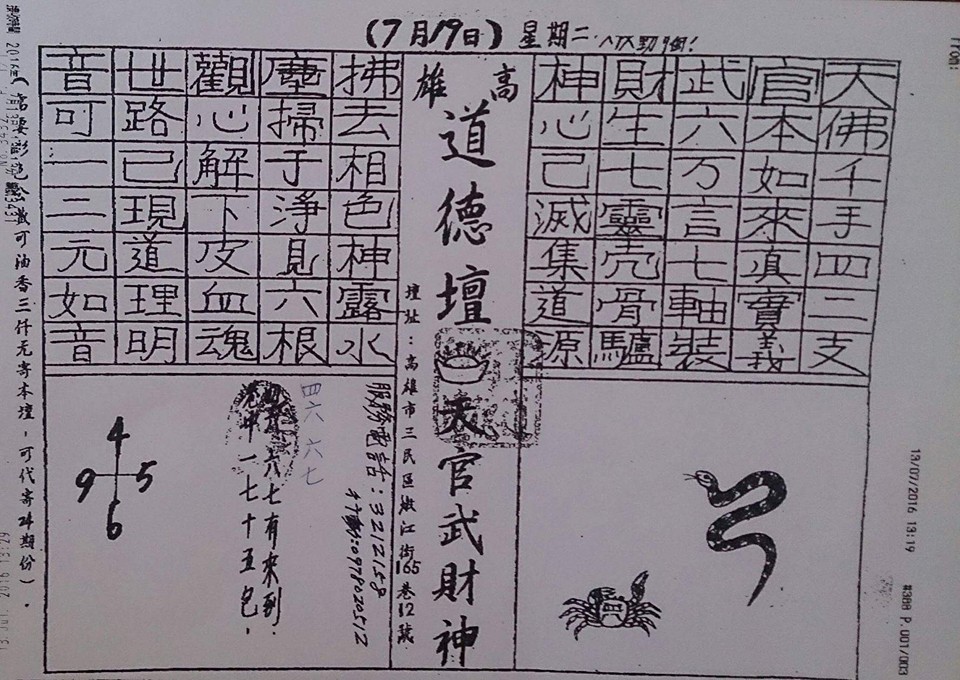 (7月19日) 星期二
天佛千手四二支
官本如來真實義
武六万言七軸裝
財生七靈壳骨驢
神心己滅集道源
高雄
道德壇
天官武財神
壇址：高雄市三民區嫩江街165巷12號
拂去相色神露水
塵掃于淨見六根
觀心解下皮血魂
世路已現道理明
音可一二元如音
服務電話：3212158
行動:0978020512
六七有來到.
中一七十五包.
四六 六七
4
9 5
6
可油香三件元寄本壇，可代寄4期份）.
13/07/2016 13:19
#388 P.001/003